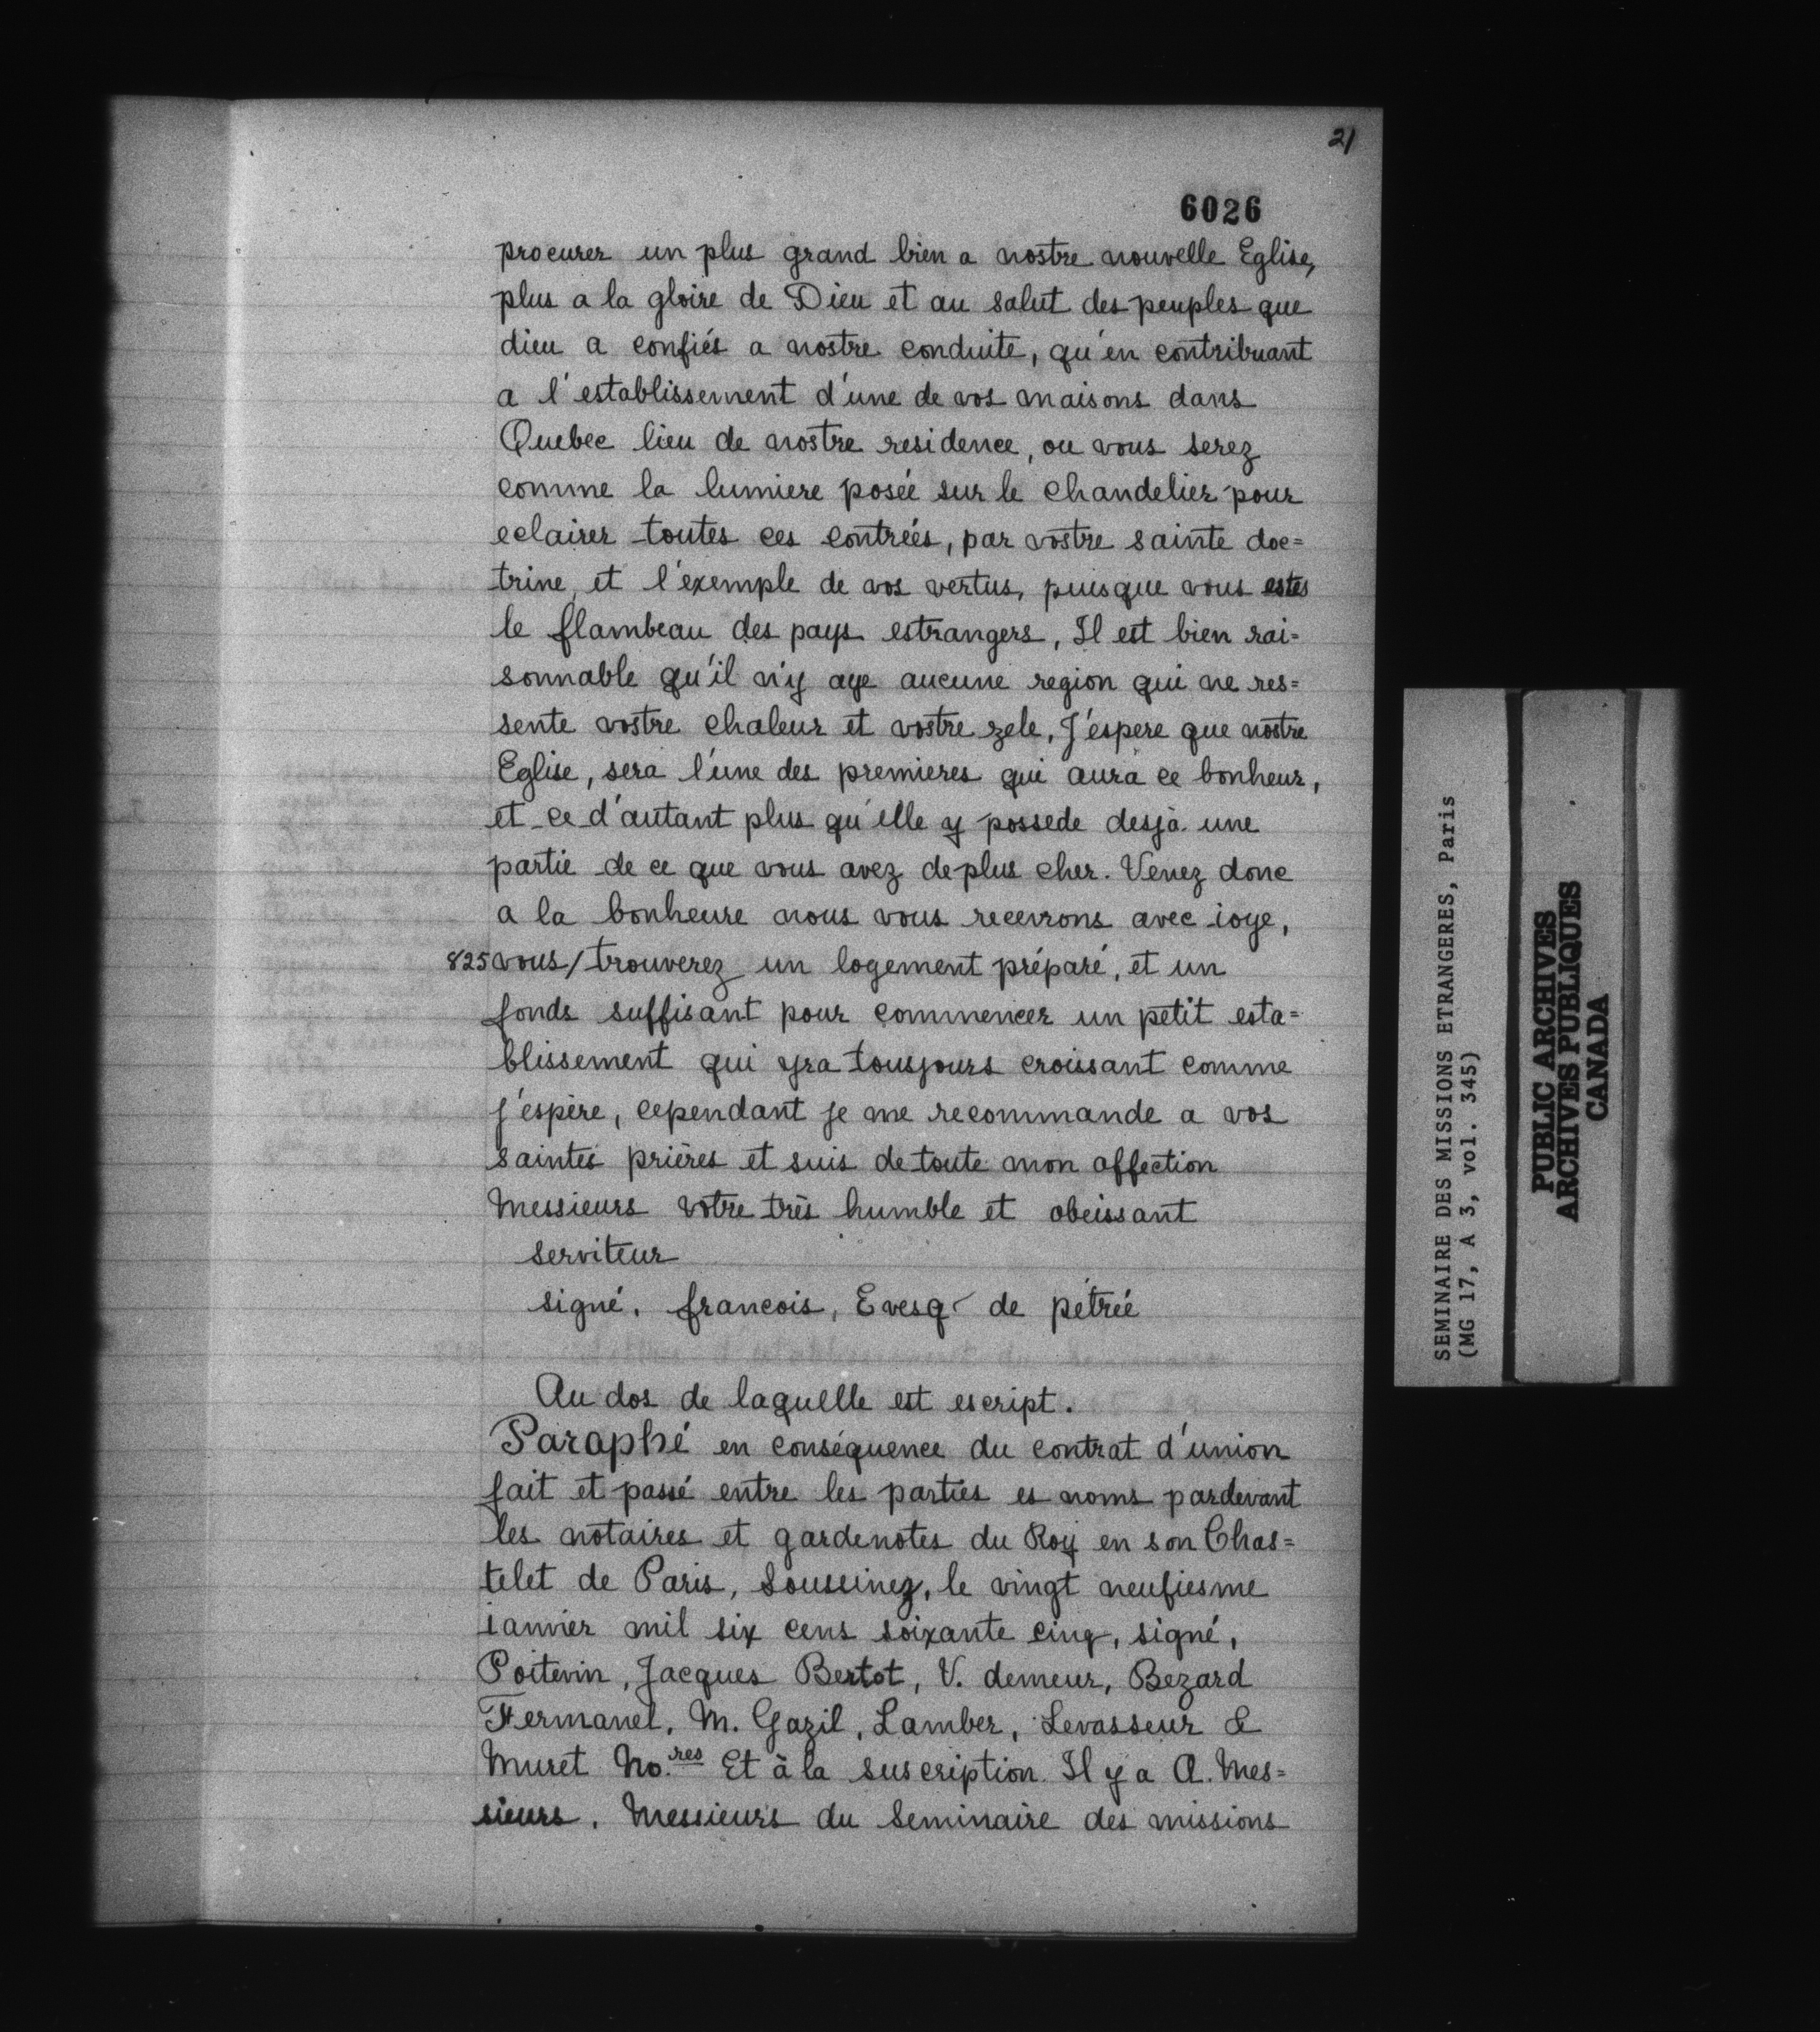 21
6026
procurer un plus grand bien a nostre nouvelle Eglise,
plus a la gloire de Dieu et au salut des peuples que
dieu a confiés a nostre conduite, qu'en contribuant
a l'establissement d'une de vos maisons dans
Quebec lieu de nostre residence, ou vous serez
comme la lumiere posée sur le chandelier pour
eclairer toutes ces contrées, par vostre sainte doc=
trine, et l'exemple de vos vertus, puisque vous estes
le flambeau des pays estrangers, Il est bien rai=
sonnable qu'il n'y aye aucune region qui ne res=
sente vostre chaleur et vostre zele, J'espere que nostre
Eglise, sera l'une des premieres qui aura ce bonheur,
et ce d'autant plus qu'elle y possede desjà une
partie de ce que vous avez de plus cher. Venez donc
a la bonheure nous vous recevrons avec ioye,
825 vous/trouverez un logement préparé, et un
fonds suffisant pour commencer un petit esta=
blissement qui yra tousjours croissant comme
j'espère, cependant je me recommande a vos
saintes prières et suis de toute mon affection
Messieurs votre très humble et obeissant
serviteur
signé, francois, Evesq de pétrée
Au dos de laquelle est escript.
Paraphé en conséquence du contrat d'union
fait et passé entre les parties es noms pardevant
les notaires et gardenotes du Roy en son Chas=
telet de Paris, Soussinez, le vingt neufiesme
ianvier mil six cens soixante cinq, signé,
Poitevin, Jacques Bertot, V. demeur, Bezard
Fermanel, M. Gazil, Lamber, Levasseur &
Muret No.res Et à la suscription. Il y a A. Mes=
sieurs. Messieurs du Seminaire des missions
SEMINAIRE DES MISSIONS ETRANGERES, Paris
(MG 17, A 3, vol. 345)
PUBLIC ARCHIVES
ARCHIVES PUBLIQUES
CANADA